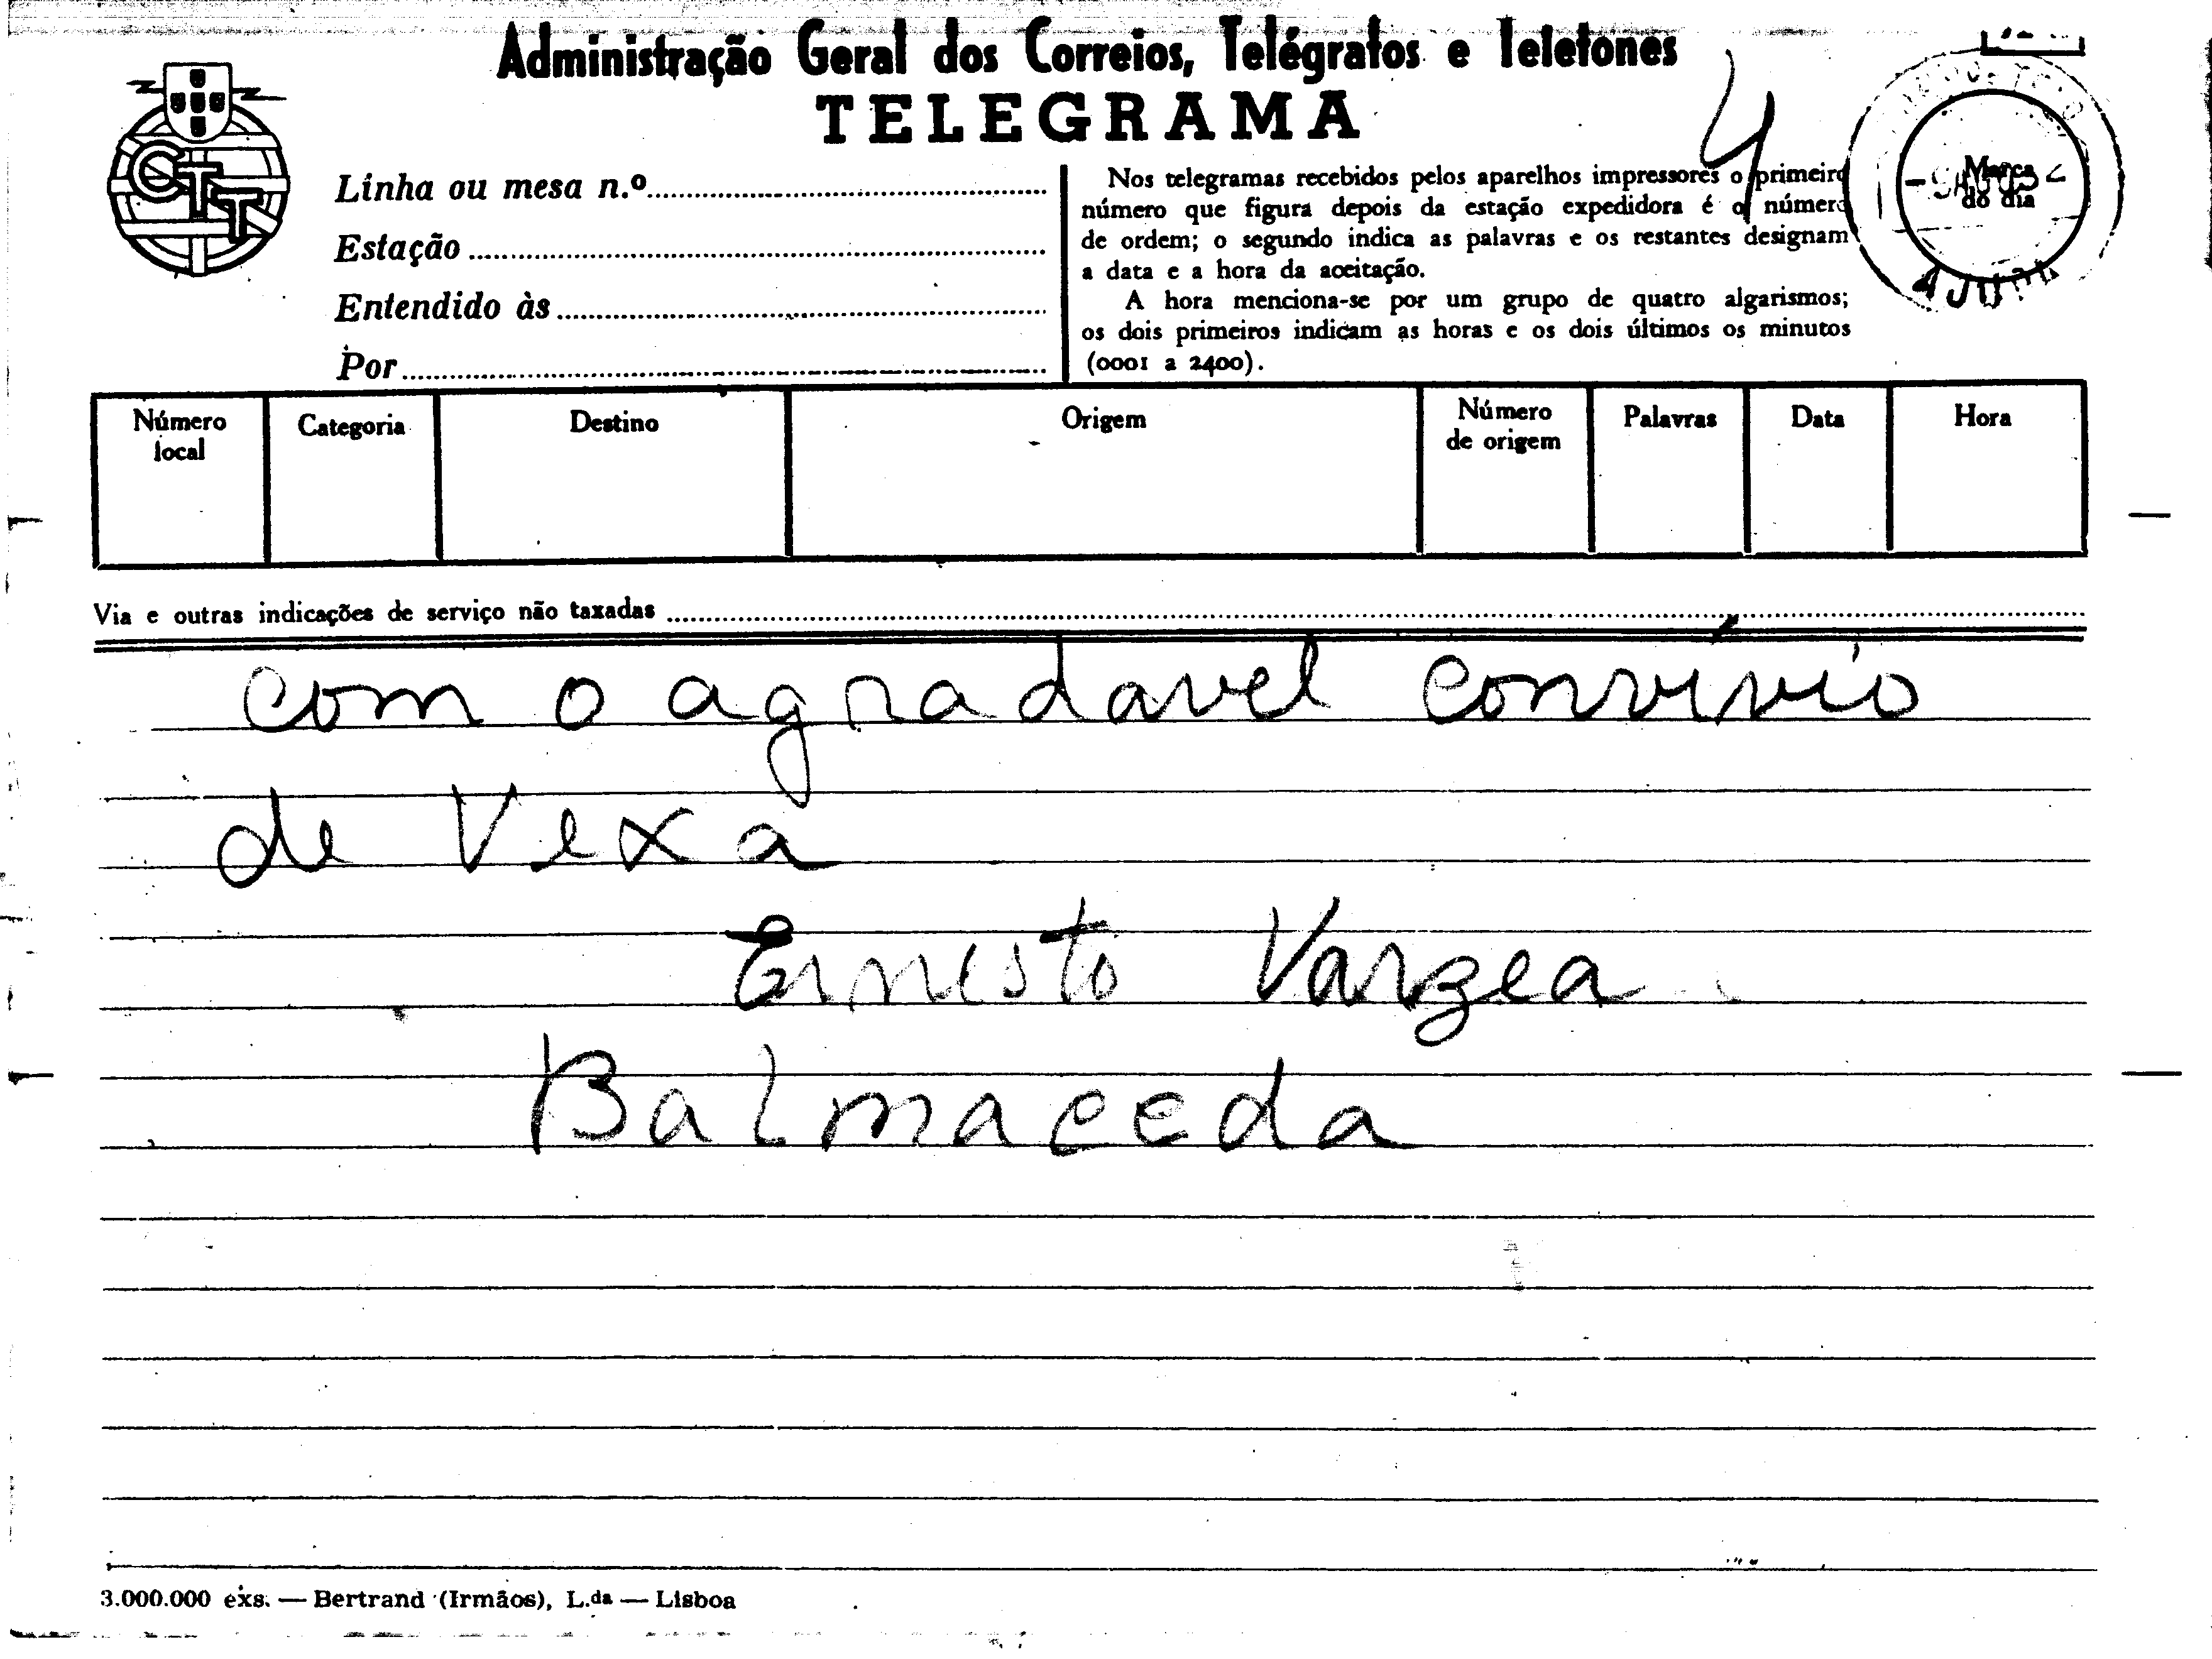 Administração Geral dos Correios, Telégrafos e Telefones
TELEGRAMA
CTT
4
Linha ou mesa n.º
Estação
Entendido às
Por
Nos telegramas recebidos pelos aparelhos impressores o primeiro
número que figura depois da estação expedidora é o número
de ordem; o segundo indica as palavras e os restantes designam
a data e a hora da aceitação.
A hora menciona-se por um grupo de quatro algarismos;
os dois primeiros indicam as horas e os dois últimos os minutos
(0001 a 2400).
Marca
do dia
AJUDA
Número local
Categoria
Destino
Origem
Número de origem
Palavras
Data
Hora
Via e outras indicações de serviço não taxadas
com o agradavel convívio
de Vexa
Ernesto Vargea
Balmaceda
3.000.000 exs. — Bertrand (Irmãos), L.da — Lisboa